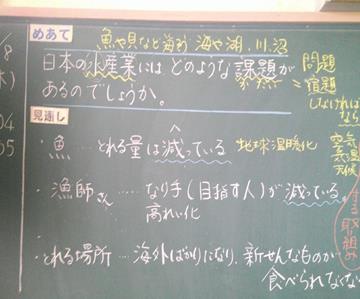 めあて
魚や貝など海そう 海や湖、川、沼
日本の水産業には どのような課題が
かだい
あるのでしょうか。
問題
=宿題
しなければ
なら
見通し
・魚 … とれる量は減っている 地球温暖化
空気
気温
天候
・漁師さん …… なり手(目指す人)が減っている。
高れい化
する取組み
・とれる場所 … 海外ばかりになり、新せんなものが
食べられなくな